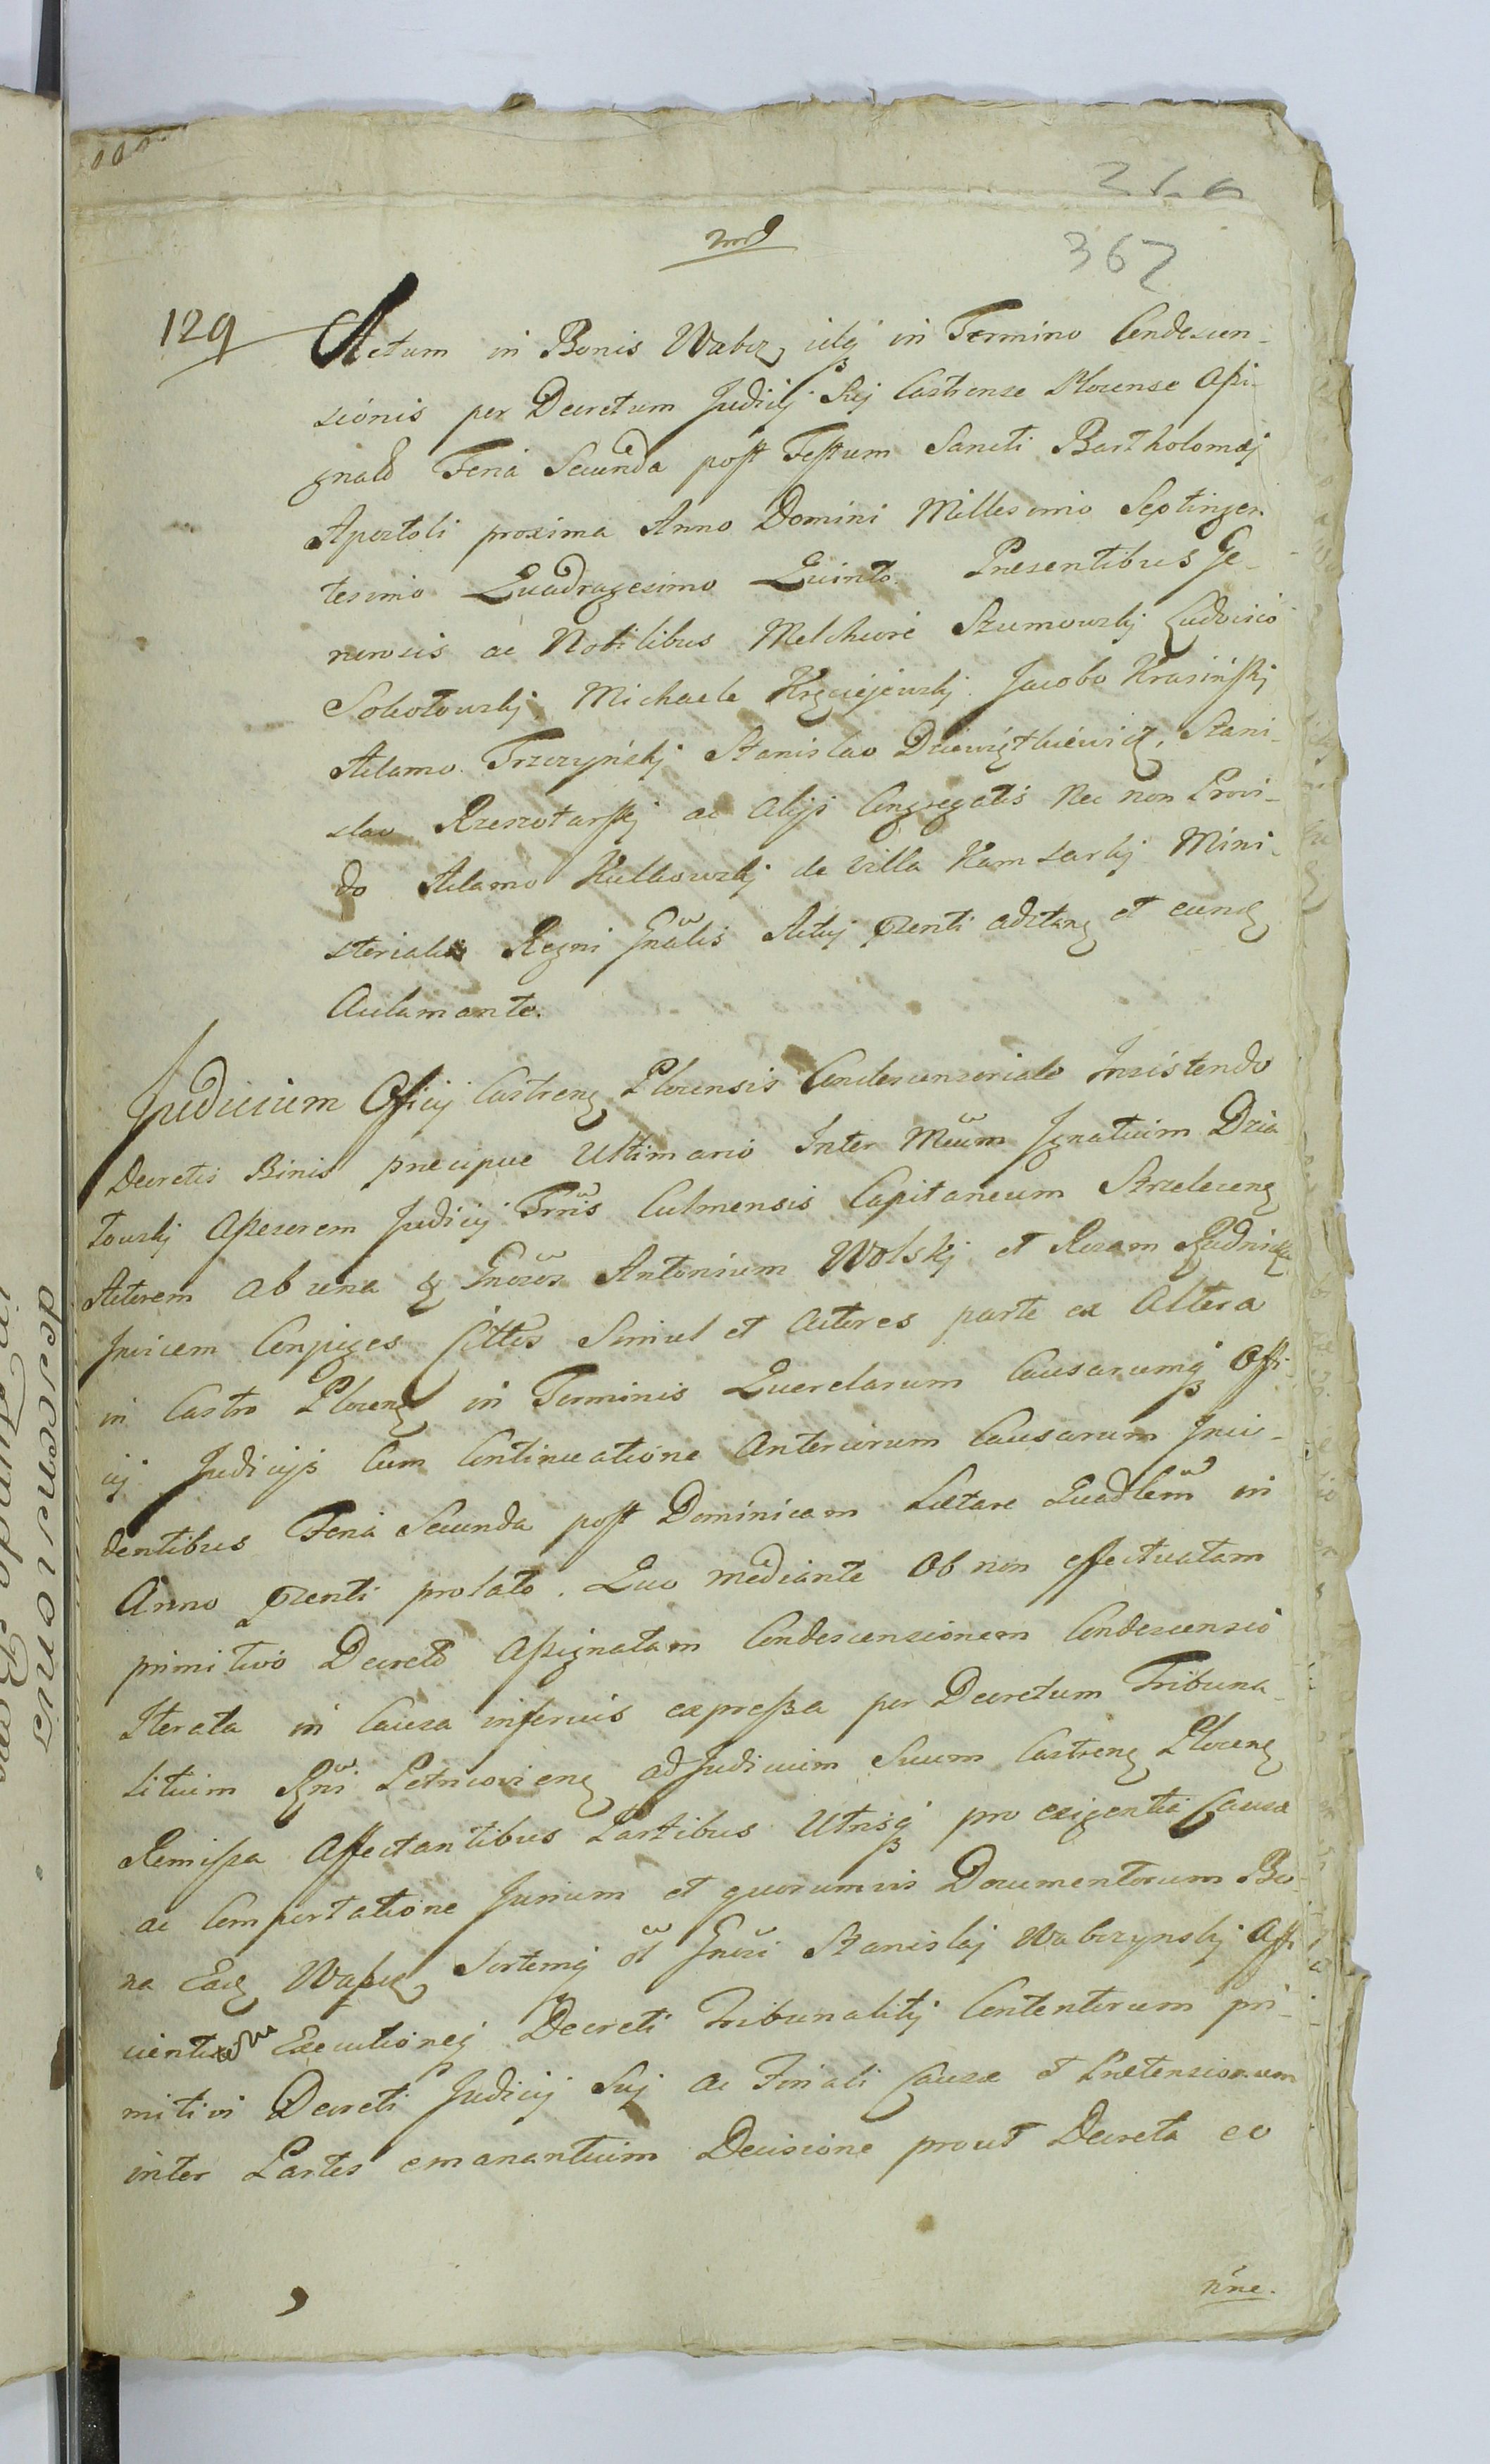 367
129
Actum in Bonis Wabcz, idq in Termino Condescen-
sionis per Decretum Judicij Rej Castrense Plocense Assi-
gnato Feria Secunda post Festum Sancti Bartholomæj
Apostoli proxima Anno Domini Millesimo Septingen
tesimo Quadragesimo Quinto. Presentibus Ge-
nerosis ac Nobilibus Melchiore Szumowskj Ludovico
Sokołowskj, Michaele Jacobo Krasińskj
Adamo Trzczyńskj Stanislao Dziewiętkiewicz, Stani-
slao Rzeszotarskj ac alijs Congregatis Nec non Provi-
do Adamo Kulkowskj de Villa Kamlarkj Mini-
steriali Regni Gnalis Actuj pzenti adstan et eund
Aclamante.
Judicium Officij Castren Plocensis Condescensoriale Insistendo
Decretis Binis precipue Ultimario Inter Mcum Ignatium Dzia
łowskj Assesorem Judicij Trris Culmensis Capitaneum Strzelecen
Actorem ab una & Gnosos Antonium Wolskj et Rosam Rudnicka
Invicem Conjuges Cittos Simul et Actores parte ex Altera
in Castro Plocen in Terminis Querelarum Causarumq Offi-
cij Judicijs Cum Continuatione Anteriorum Causarum Inci-
dentibus Feria Secunda post Dominicam Lætare Quadlem in
Anno pzenti prolato. Quo mediante Ob non effectuatam
primitivo Decreto Assignatam Condescensionem Condescensio
Iterata in Causa inferius expressa per Decretum Tribuna-
litium Rgni Petricovien ad Judicium Suum Castren Plocen
Remissa Affectantibus Partibus Utrisq pro exigentia Causæ
ac Comportatione Jurium et quorumvis Documentorum Bo-
na Ead Wapcz, Sortemq ol Gnosi Stanislaj Wabczynskj Affi
cientium Executioneq Decreti Tribunalitij Contentorum pri-
mitivi Decreti Judicij Suj ac Finali Causæ et Prætensionum
inter Partes emanantium Decisione prout Decreta eo
nñe.